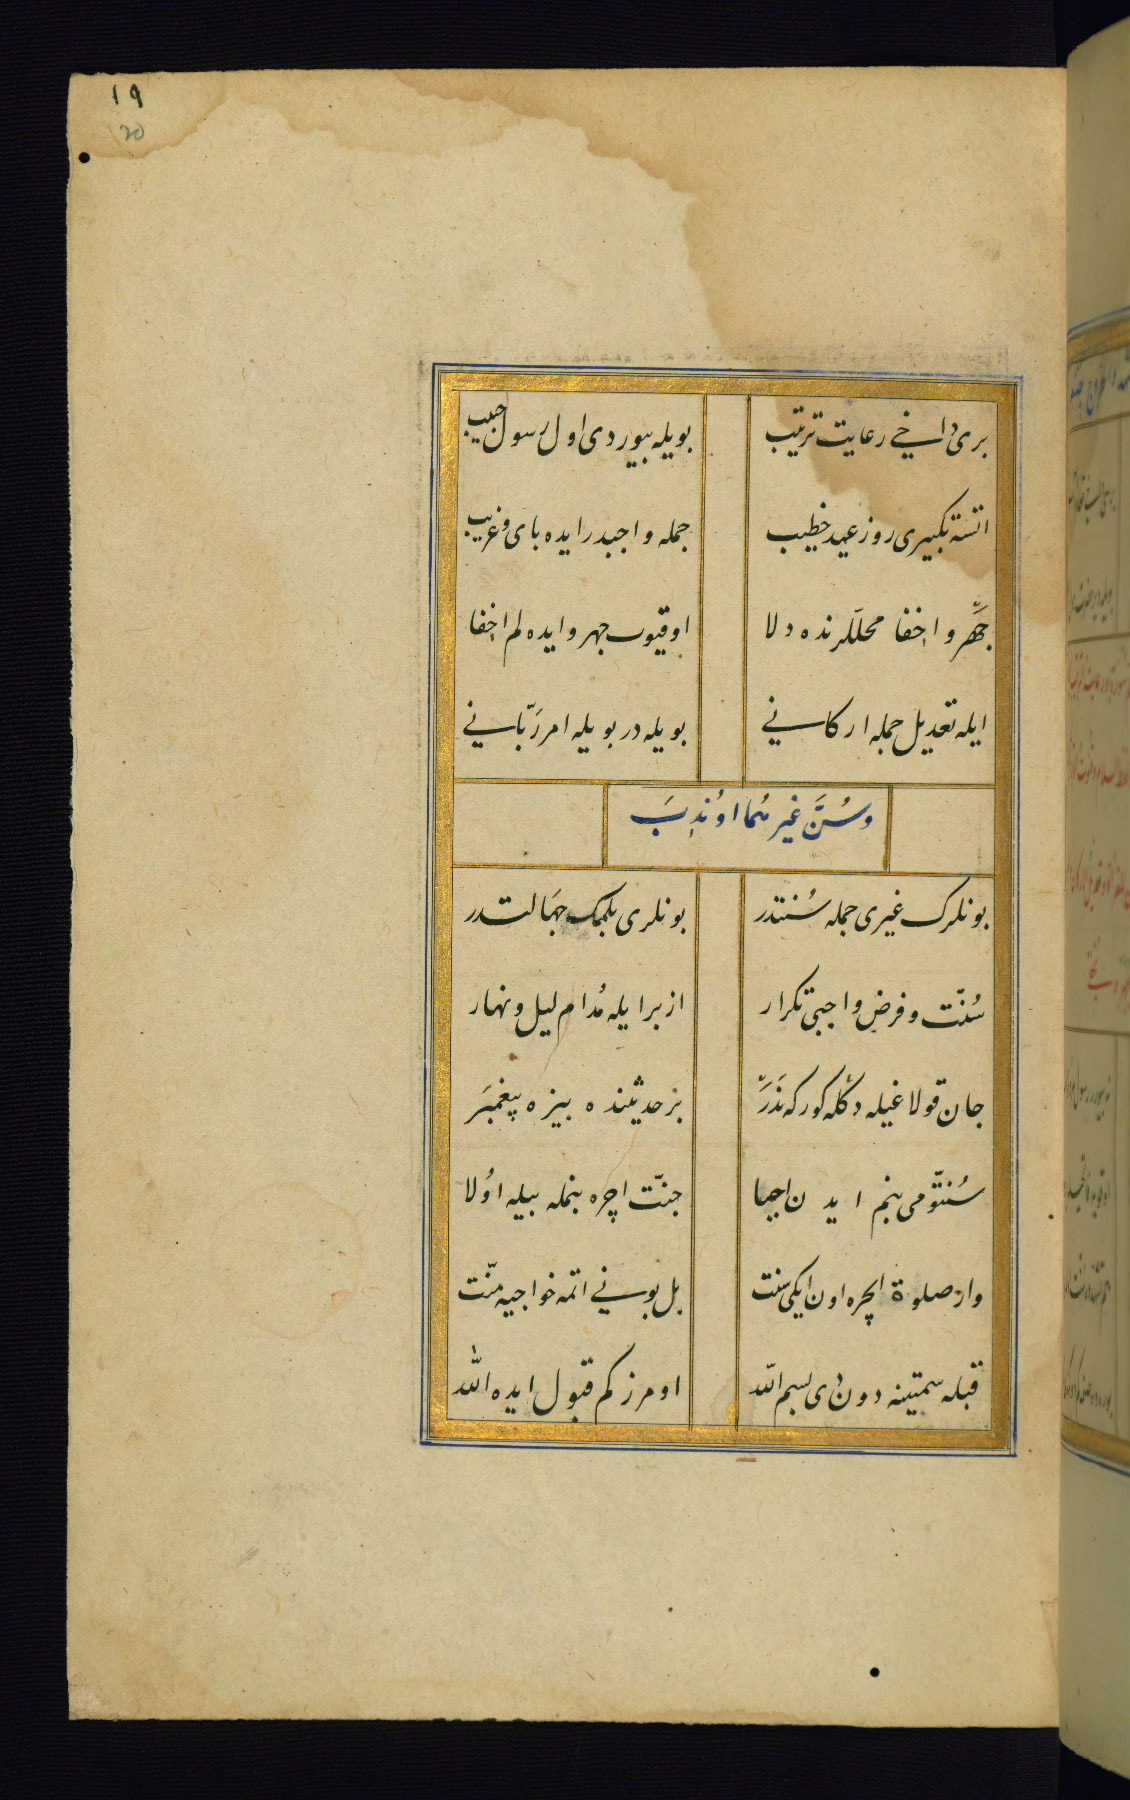 ١٩
20
بری داخی رعایت ترتیب بویله بیوردی اول رسول حبیب
اتسه تکبیری روز عید خطیب جمله واجبدر ایده بای و غریب
جهر و اخفا محللرنده دلا اوقیوب جهر و ایده لم اخفا
ایله تعدیل جمله ارکانی بویله در بویله امر ربّانی
وسُنَّ غیرهما او نُدِبَ
بونلرک غیری جمله سُنتدر بونلری بلمک جهالتدر
سُنّت و فرض و اجبی تکرار ازبر ایله مُدام لیل و نهار
جان قولاغیله دکله کور که نه در بز حدیثنده بیزه پیغمبَر
سُنّتومی بنم ایدن احیا جنّت اچره بنمله بیله اوُلا
وار صلوة ایچره اون ایکی سنت بل بونی اتمه خواجیه منّت
قبله سمتینه دون دی بسم الله اومرز کم قبول ایده الله